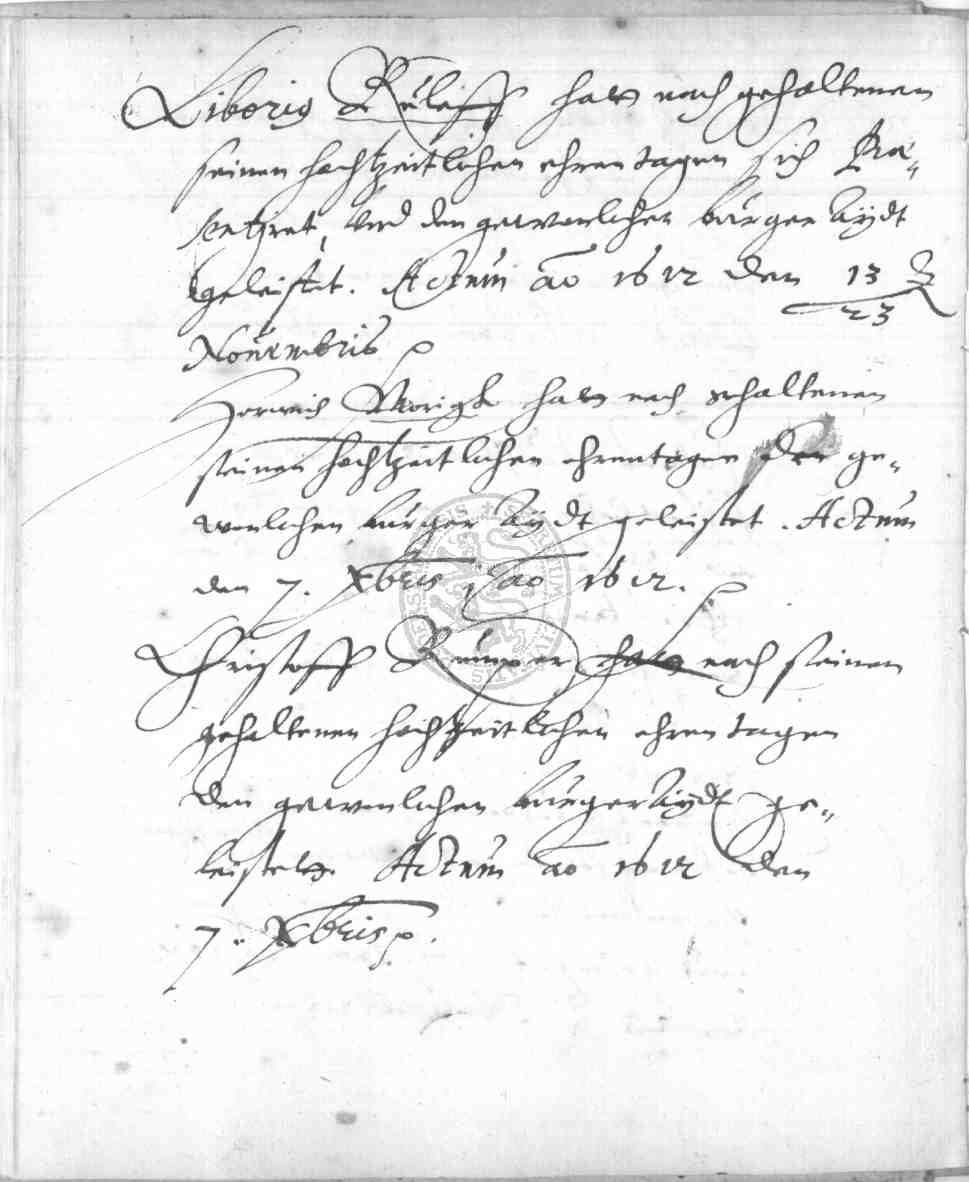 Liborig Ruleff hatt nach gehaltenen
seinen hochtzeitlichen ehrentagen sich Prae-
sentiret, vnd den gewonlichen burger Aÿdt
geleistet. Actum ao 1612 den 13
23
Nouembris
Hatt nach gehaltenen
seinen hochtzeitlichen ehrentagen den ge-
wonlichen burger Aÿdt geleistet. Actum
den 7. Xbris ao 1612.
Christoff hatt nach seinen
gehaltenen hochtzeitlichen ehren tagen
den gewonlichen burger Aÿdt ge-
leistett. Actum ao 1612 den
7. Xbris.